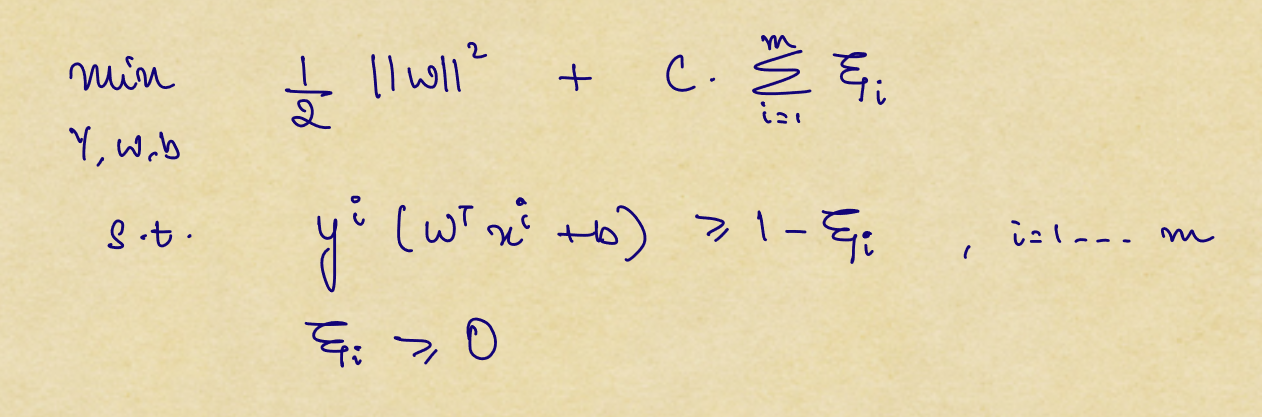 min 1/2 ||w||² + C. Σ_{i=1}^{m} ξ_i
γ, w, b
s.t. y^i (w^T x^i + b) ⩾ 1 - ξ_i , i=1--- m
ξ_i ⩾ 0